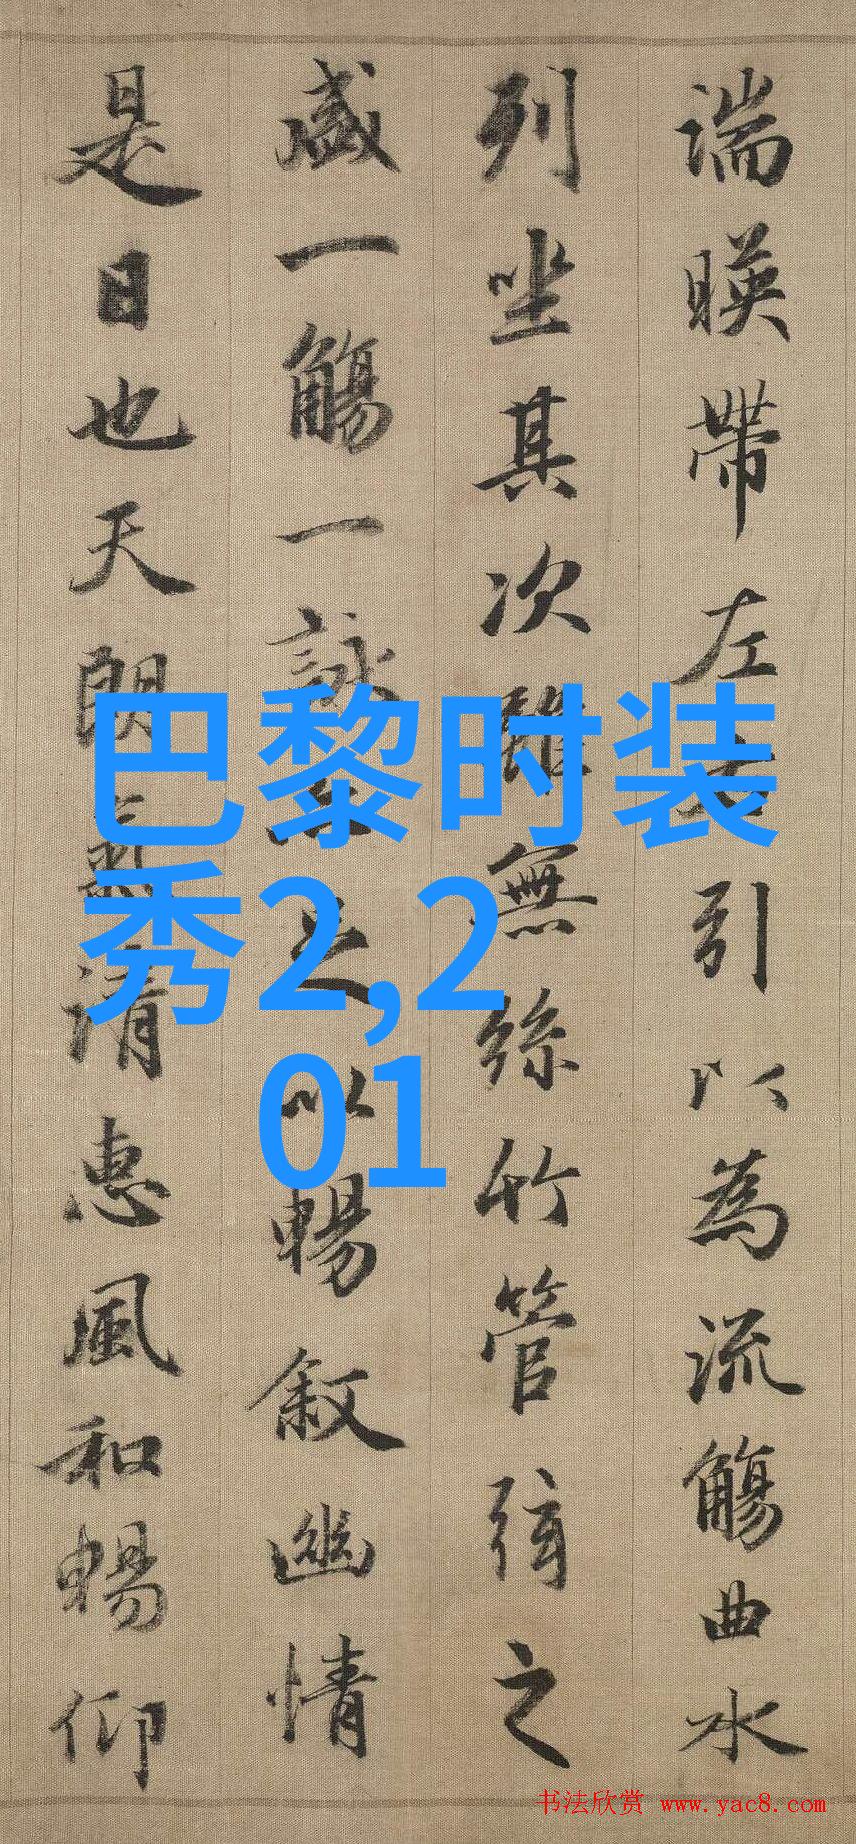 湍暎帶左右引以為流觴曲水
列坐其次雖無絲竹管弦之
盛一觴一詠亦足以暢敘幽情
是日也天朗氣清惠風和暢仰
巴黎时装
秀2,2
01
书法欣赏 www.yac8.com